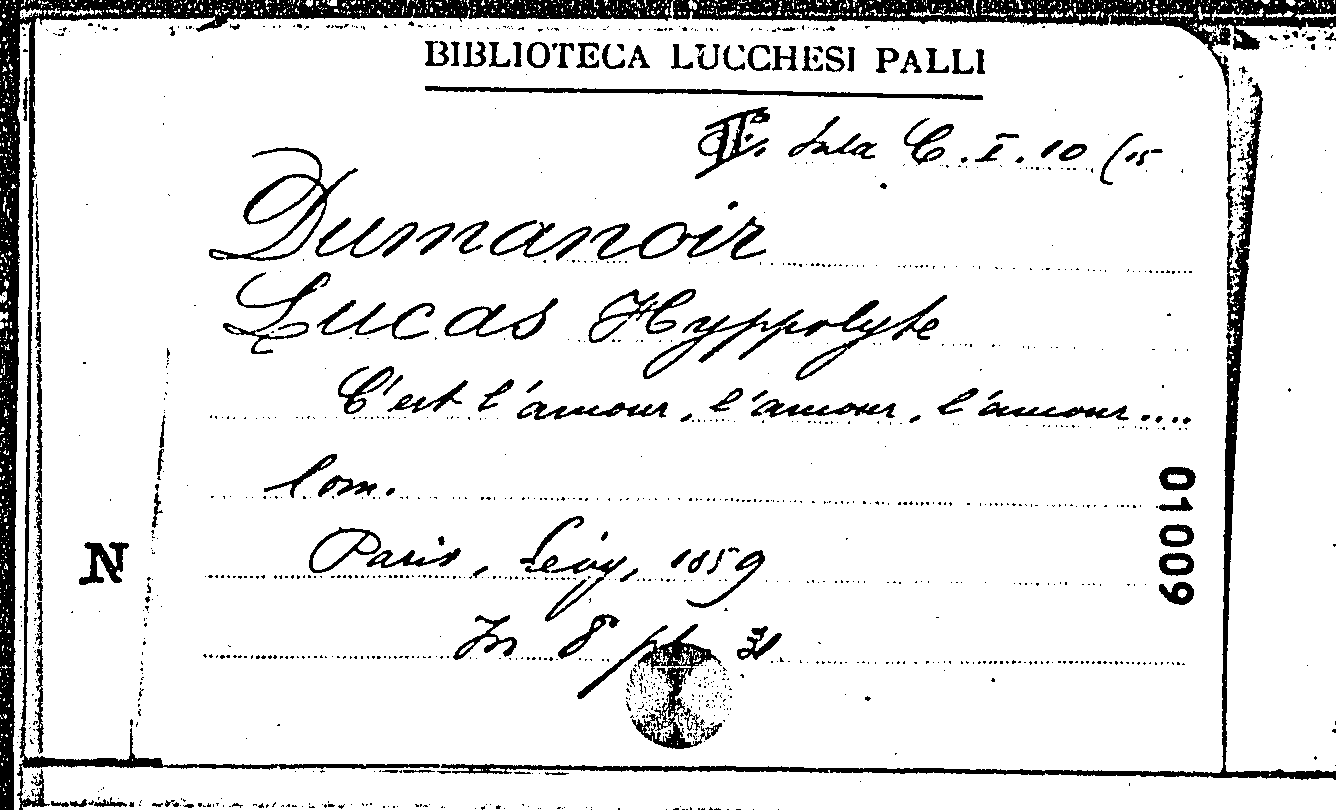 BIBLIOTECA LUCCHESI PALLI
IIª Sala C. I. 10 (15
Dumanoir
Lucas Hyppolyte
C'est l'amour, l'amour, l'amour....
Com.
Paris, Lévy, 1859
In 8º pp.
N
01009